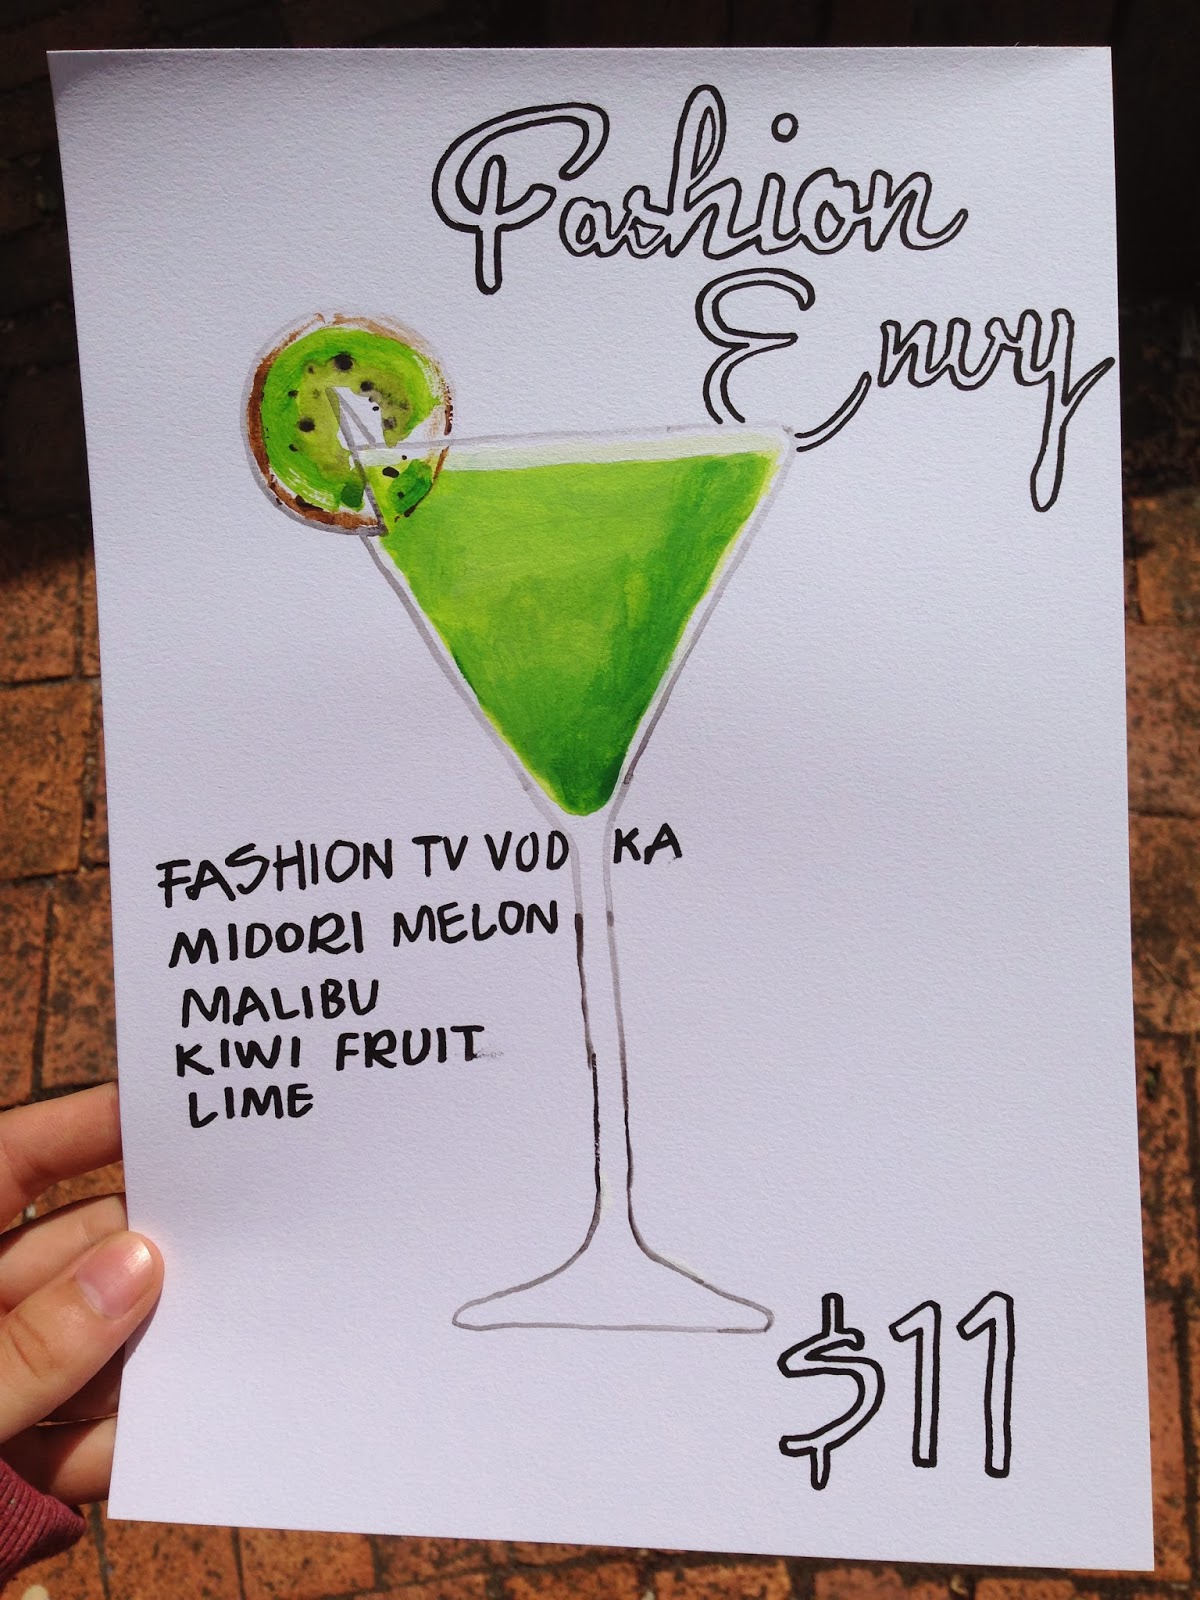 Fashion
Envy
FASHION TV VODKA
MIDORI MELON
MALIBU
KIWI FRUIT
LIME
$11